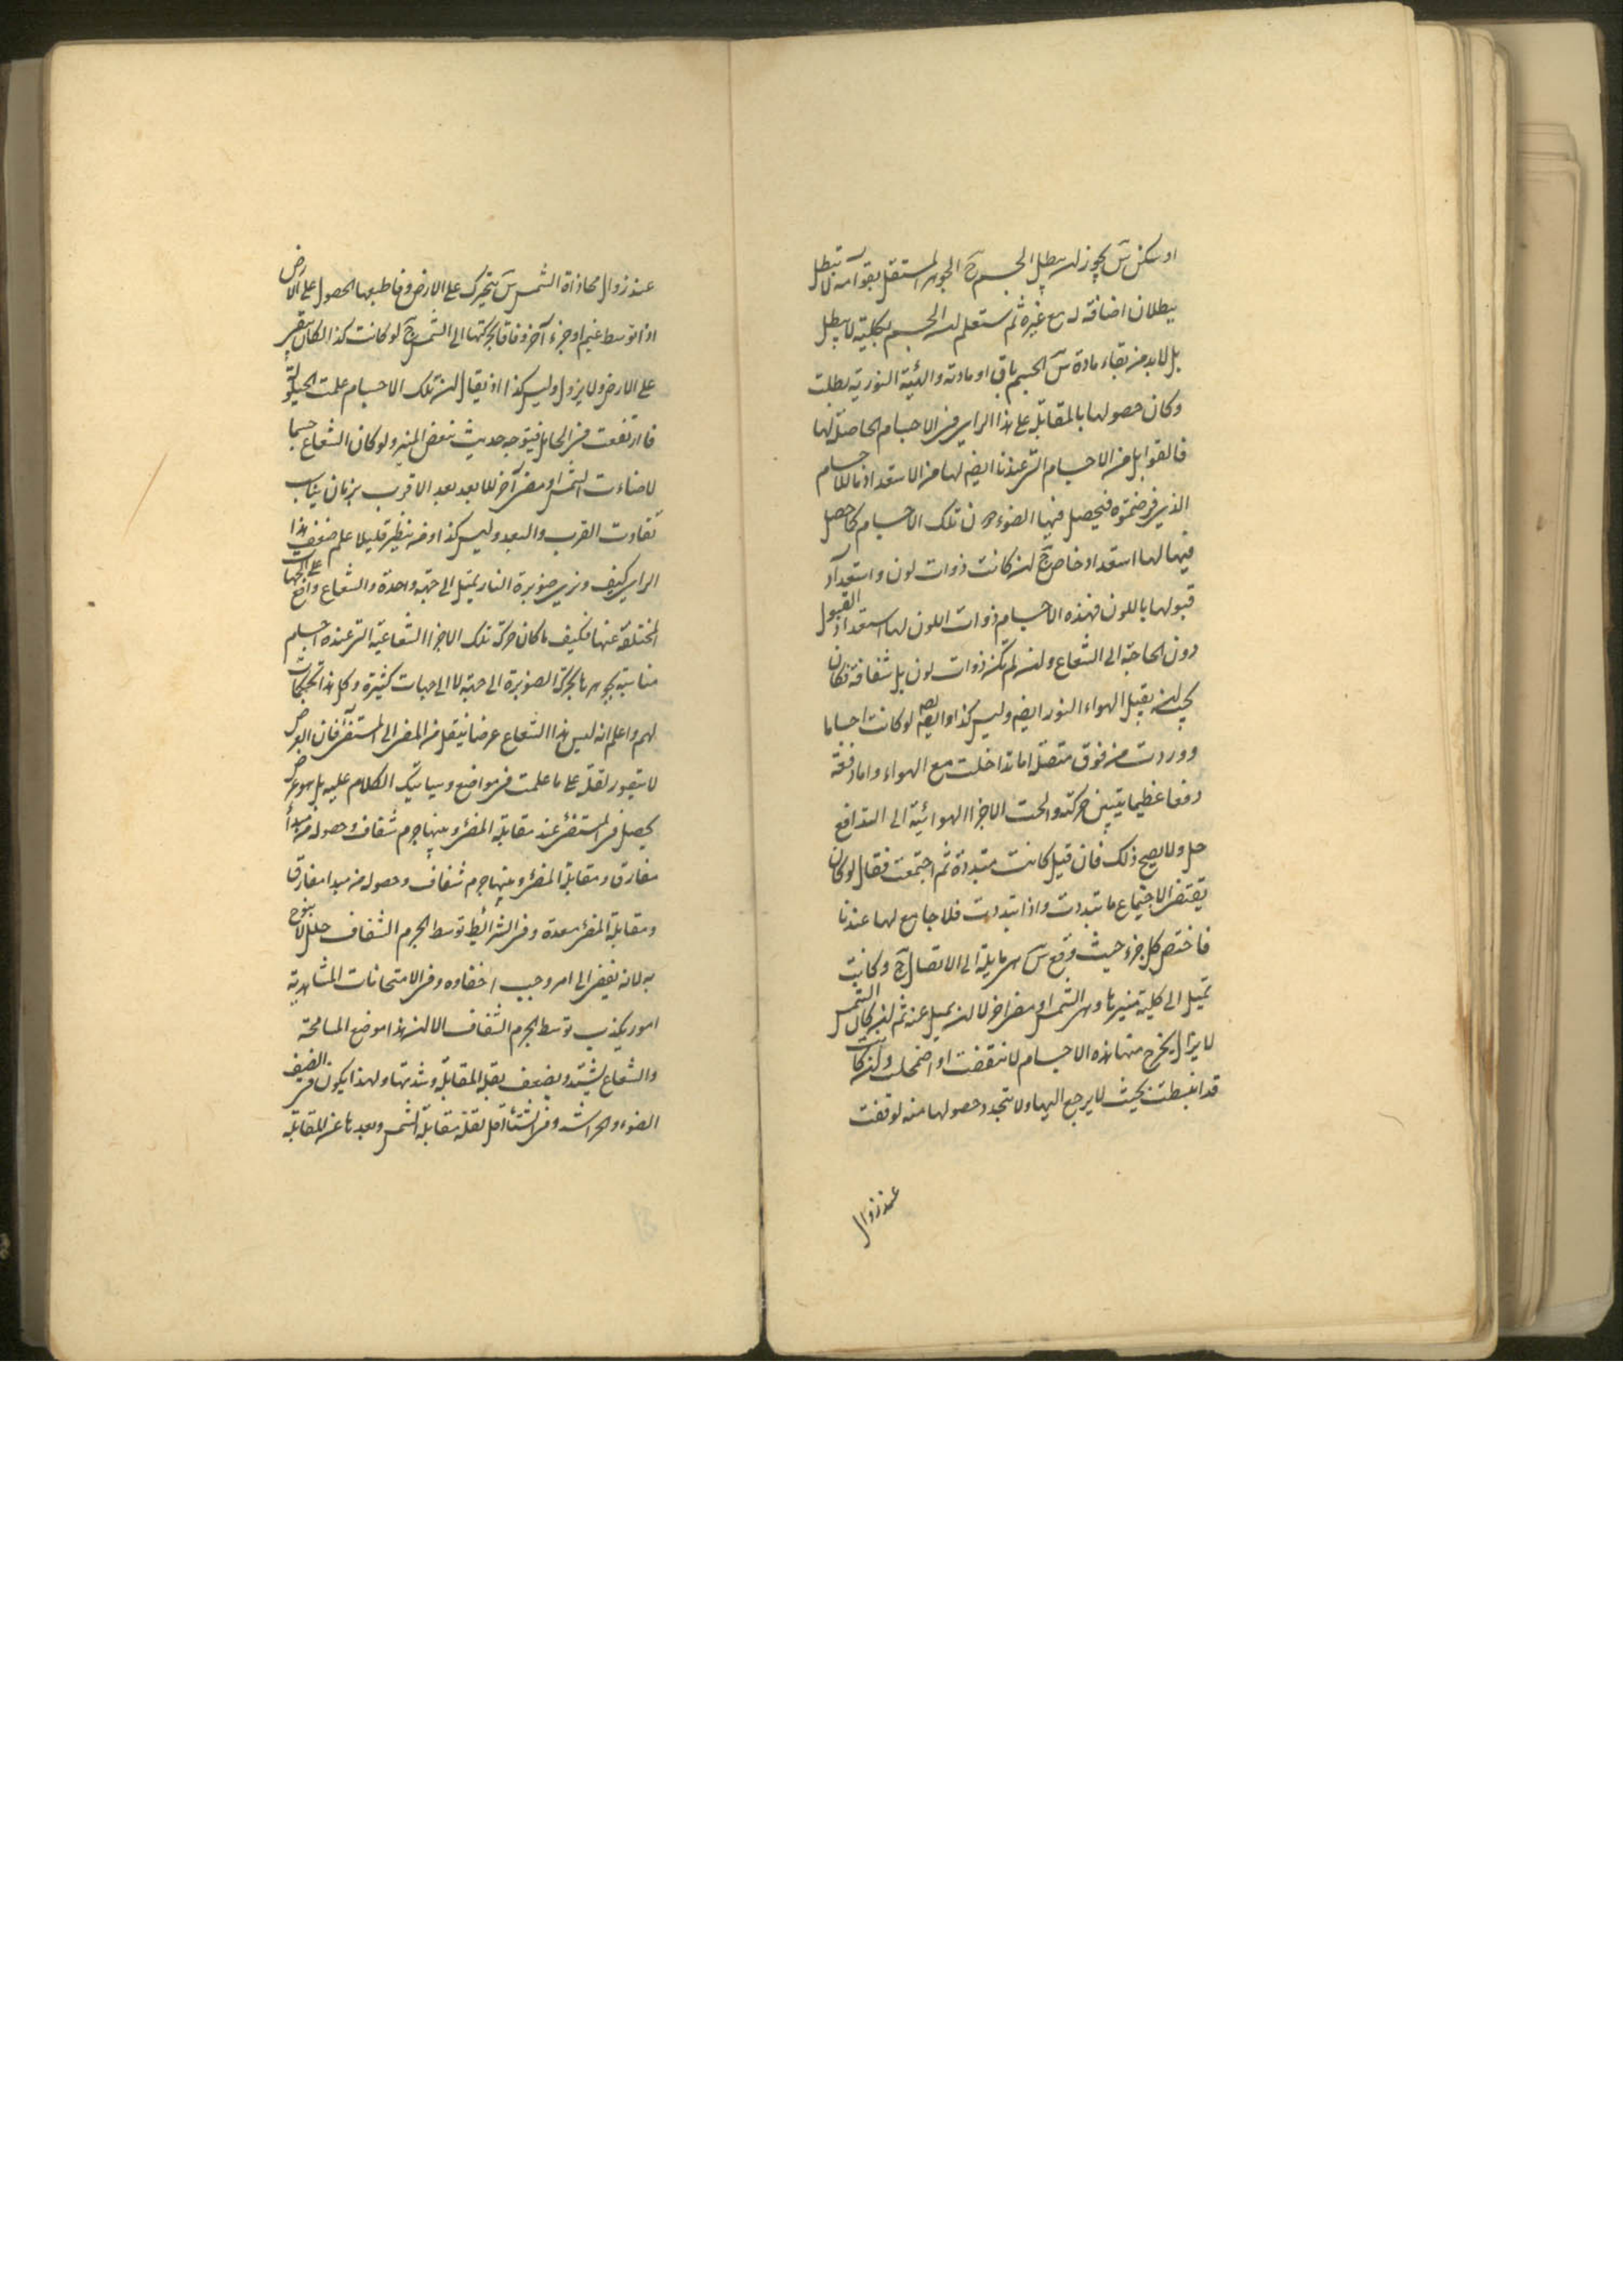 او سكن سَ يجوز ان يبطل الجسم حَ الجوهر المستقل بقوامه لا تبطل
ببطلان اضافة له مع غيره ثم ستعلم ان الجسم بكليته لا يبطل
بل لا بد من بقاء مادة سَ الجسم باق او مادته والهيئة النورية بطلت
وكان حصولها بالمقابلة على هذا الراى فى الاجسام الحاصلة لها
فالقوابل من الاجسام التى عندنا ايضا لها من الاستعداد ما للاجسام
الذى فرضتموه فيحصل فيها الضوء دون تلك الاجسام كما حصل
فيها لها استعداد خاص حَ ان كانت ذوات لون واستعداد
قبولها باللون فهذه الاجسام ذوات اللون لها استعداد القبول
دون الحاجة الى الشعاع وان لم تكن ذوات لون بل شفافة فكان
يجب ان يقبل الهواء النور ايضا وليس كذا وايضا لو كانت اجساما
ووردت من فوق متصلة اما تداخلت مع الهواء واما دفعته
دفعا عظيما يتبين حركته والحت الاجزا الهوائية الى التدافع
حل ولا يصح ذلك فان قيل كانت متبددة ثم اجتمعت فقال لو كان
يقتضى الاجتماع ما تبددت واذا تبددت فلا جامع لها عندنا
فاختص كل جزء حيث وقع سَ هى مايلة الى الاتصال حَ وكانت
تميل الى كلية منيرها وهى الشمس او مضئ اخر لا ان يميل عنه ثم ان كان الشمس
لا يزال يخرج منها هذه الاجسام لانتقضت او اضمحلت وان كانت
قد انبسطت بحيث لا يرجع اليها ولا يتجدد حصولها منه لوقفت
عند زوال
عند زوال محاذاة الشمس سَ يتحرك على الارض وفا طبعها الحصول على الارض
اذا توسط غيم او جزء آخر وفاقا لحركتها الى الشمس حَ لو كانت كذا لكان يستقر
على الارض ولا يزول وليس كذا اذ يقال ان تلك الاجسام علمت الحيلولة
فارتفعت من الحايل فيتوجه حديث نقض المنير ولو كان الشعاع جسما
لاضاءت الشمس او مضئ آخر للابعد بعد الاقرب بزمان يناسب
تفاوت القرب والبعد وليس كذا ومن ينظر قليلا علم ضعف هذا
الراى كيف ونرى صنوبرة النار يميل الى جهة واحدة والشعاع واقع على الجهات
المختلفة عنها فكيف ما كان حركة تلك الاجزا الشعاعية التى عنده اجسام
مناسبة بجوهرها بحركة الصنوبرة الى جهة لا الى جهات كثيرة وكل هذا تحكمات
لهم واعلم انه ليس هذا الشعاع عرضا ينتقل من المضئ الى المستضئ فان العرض
لا يتصور نقله على ما علمت فى مواضع وسياتيك الكلام عليه بل هو عرض
يحصل فى المستضئ عند مقابلة المضئ وبينها جرم شفاف وحصوله من مبدأ
مفارق ومقابلة المضئ وبينها جرم شفاف وحصوله من مبدا مفارق
ومقابلة المضئ معدة وفى الشرائط توسط الجرم الشفاف خلل لا نبوح
به لانه يفضى الى امر وجب اخفاوه وفى الامتحانات المشاهدية
امور يكذب توسط الجرم الشفاف الا ان هذا موضع المسامحة
والشعاع يشتد ويضعف بقلة المقابلة وشدتها ولهذا يكون فى الصيف
الضوء والحر اشد وفى الشتا اقل لقلة مقابلة الشمس وبعدها عن المقابلة